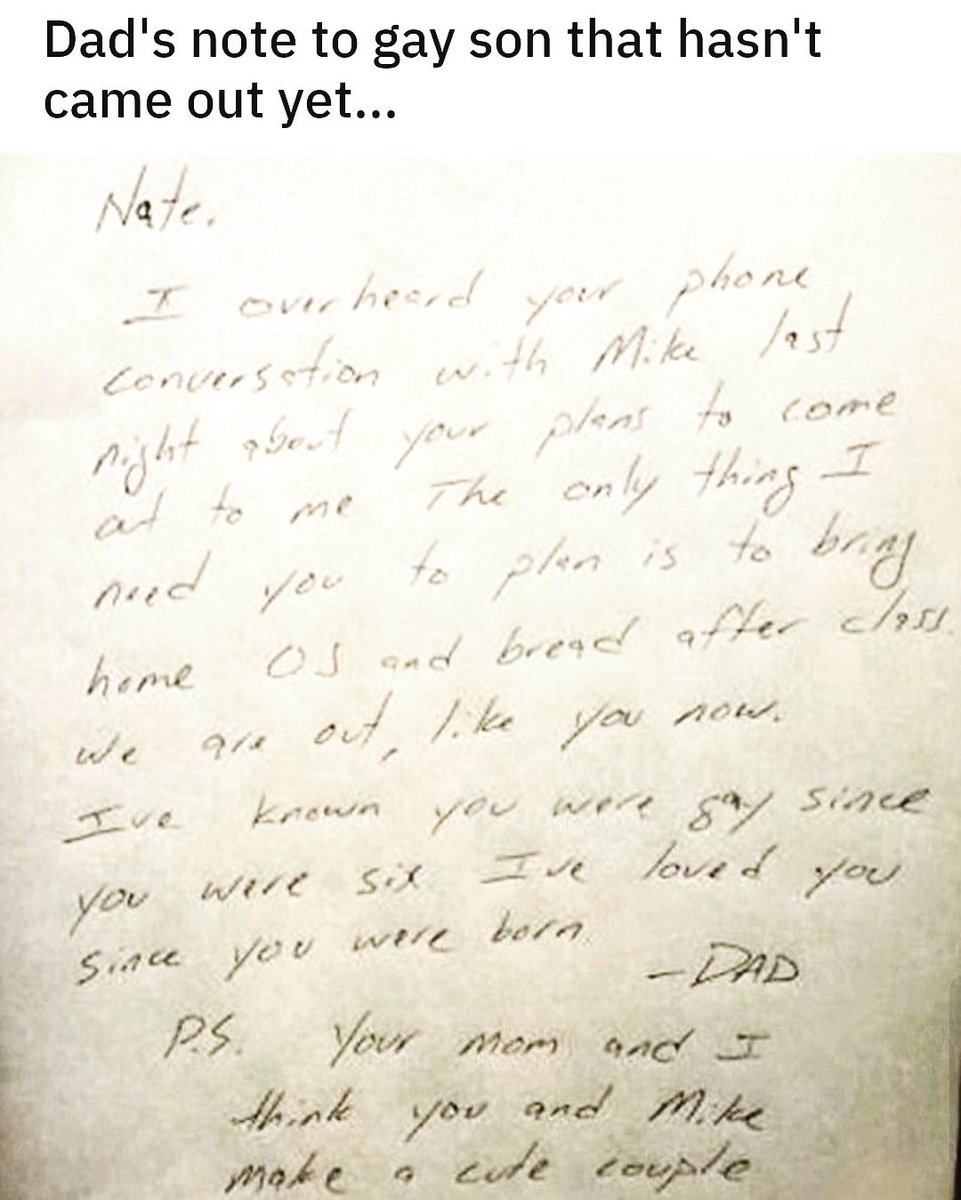 Dad's note to gay son that hasn't
came out yet...
Nate.
I overheard your phone
conversation with Mike last
night about your plans to come
out to me The only thing I
need you to plan is to bring
home OJ and bread after class.
We are out, like you now.
I've known you were gay since
you were six I've loved you
since you were born.
-DAD
P.S. Your mom and I
think you and Mike
make a cute couple